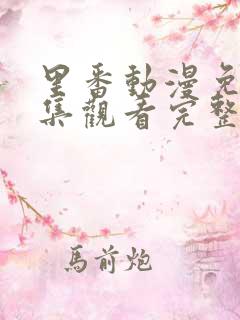 里番動漫免
集觀看完整
馬前炮